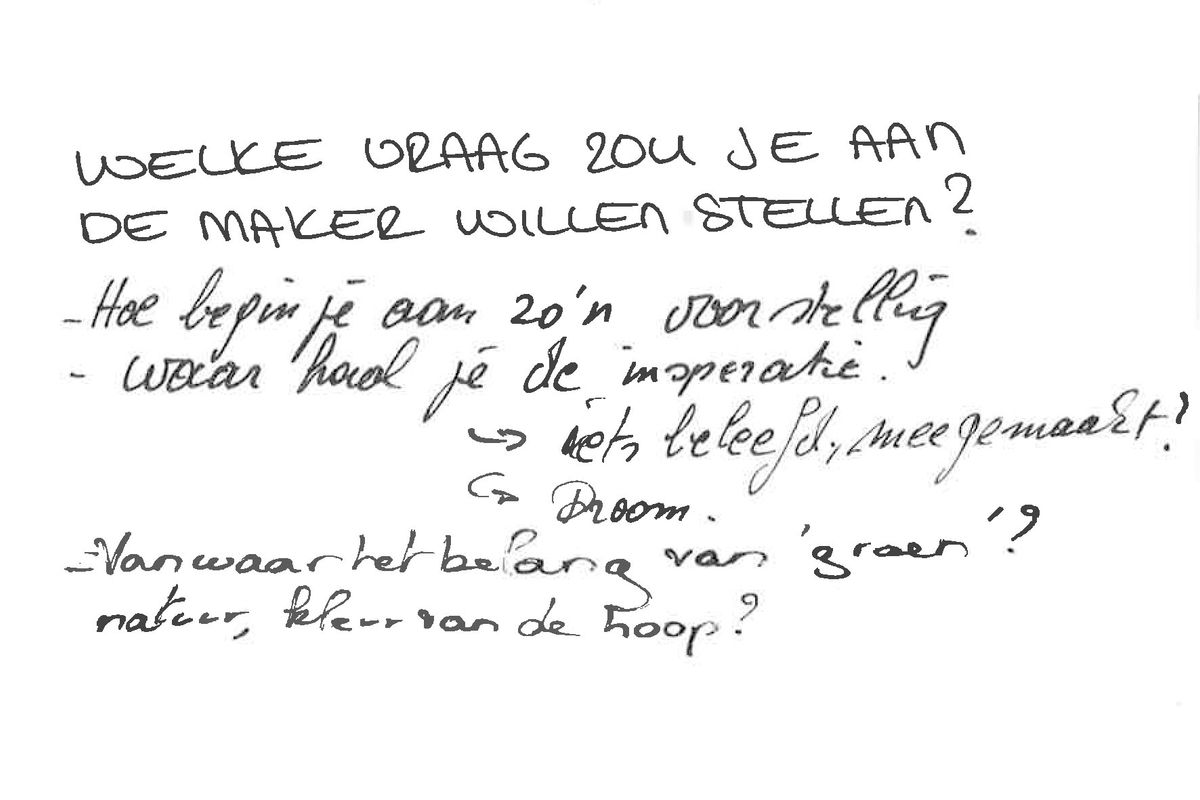 WELKE VRAAG ZOU JE AAN
DE MAKER WILLEN STELLEN?
- Hoe begin je aan zo'n voorstellig
- waar haal je de insperatie.
↪ iets beleefd, meegemaakt?
↪ Droom.
- Vanwaar het belang van 'groen'?
natuur, kleur van de hoop?